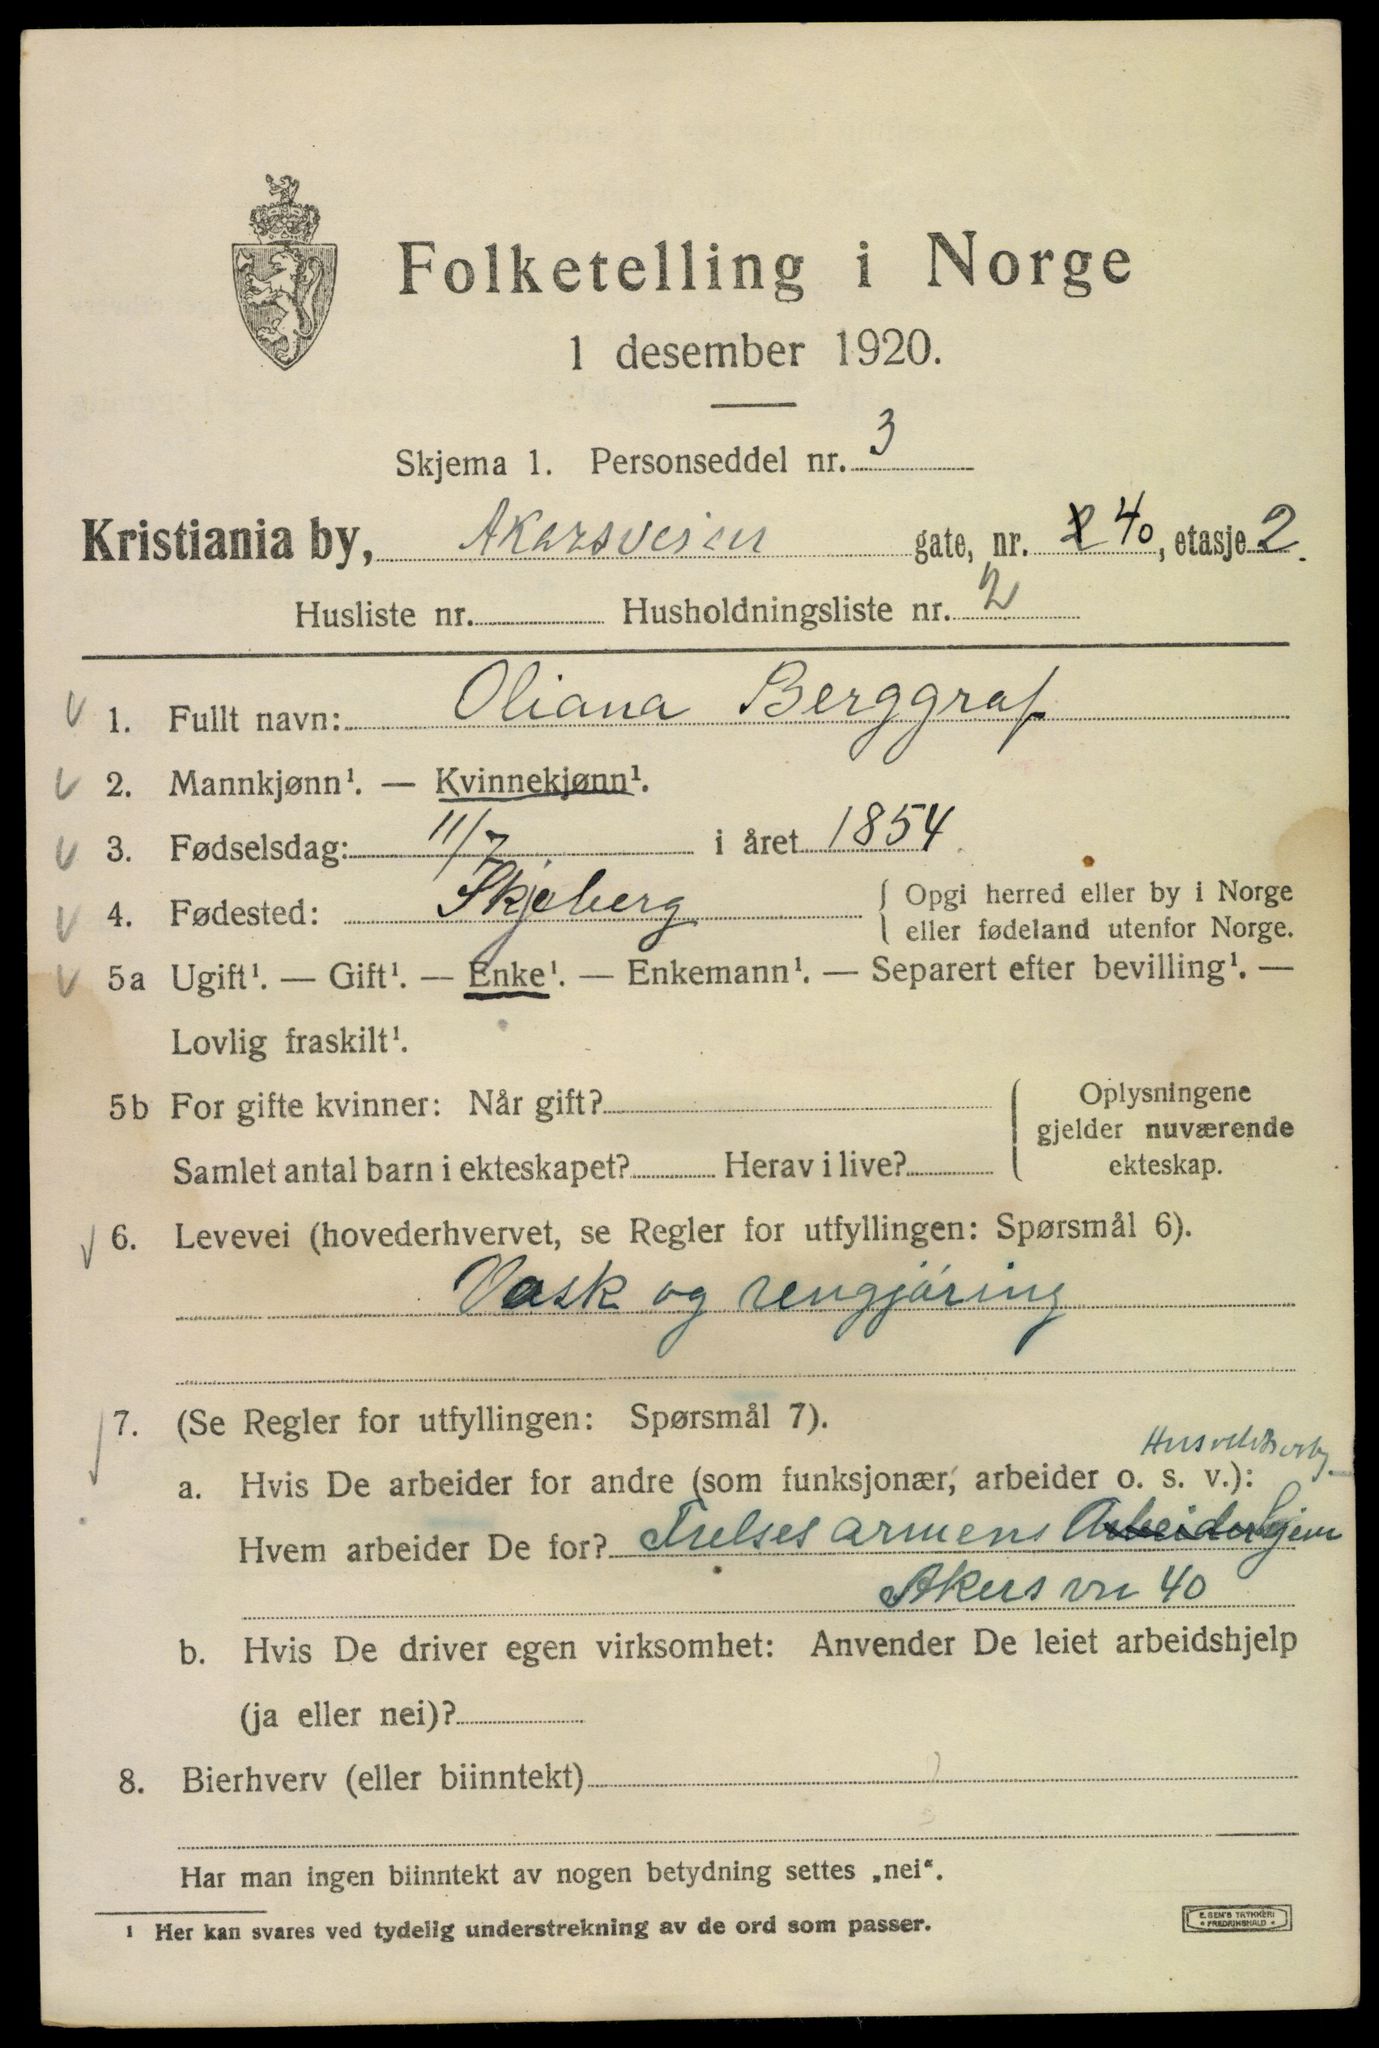 Folketelling i Norge
1 desember 1920.
Skjema 1. Personseddel nr. 3
Kristiania by, Akersveien gate, nr. 2 40, etasje 2.
Husliste nr. Husholdningsliste nr. 2
1. Fullt navn: Oliana Berggraf
2. Mannkjønn¹. — Kvinnekjønn¹.
3. Fødselsdag: 11/7 i året 1854.
4. Fødested: Skjeberg { Opgi herred eller by i Norge
eller fødeland utenfor Norge.
5a Ugift¹. — Gift¹. — Enke¹. — Enkemann¹. — Separert efter bevilling¹. —
Lovlig fraskilt¹.
5b For gifte kvinner: Når gift? { Oplysningene
gjelder nuværende
Samlet antal barn i ekteskapet? Herav i live? ekteskap.
6. Levevei (hovederhvervet, se Regler for utfyllingen: Spørsmål 6).
Vask og rengjöring
7. (Se Regler for utfyllingen: Spørsmål 7).
a. Hvis De arbeider for andre (som funksjonær, arbeider o. s. v.):
Hvem arbeider De for? Frelsesarmens Arbeiderhjem
Akersvn 40
b. Hvis De driver egen virksomhet: Anvender De leiet arbeidshjelp
(ja eller nei)?
8. Bierhverv (eller biinntekt)
Har man ingen biinntekt av nogen betydning settes „nei“.
¹ Her kan svares ved tydelig understrekning av de ord som passer.
E. SEM'S TRYKKERI
FREDRIKSHALD